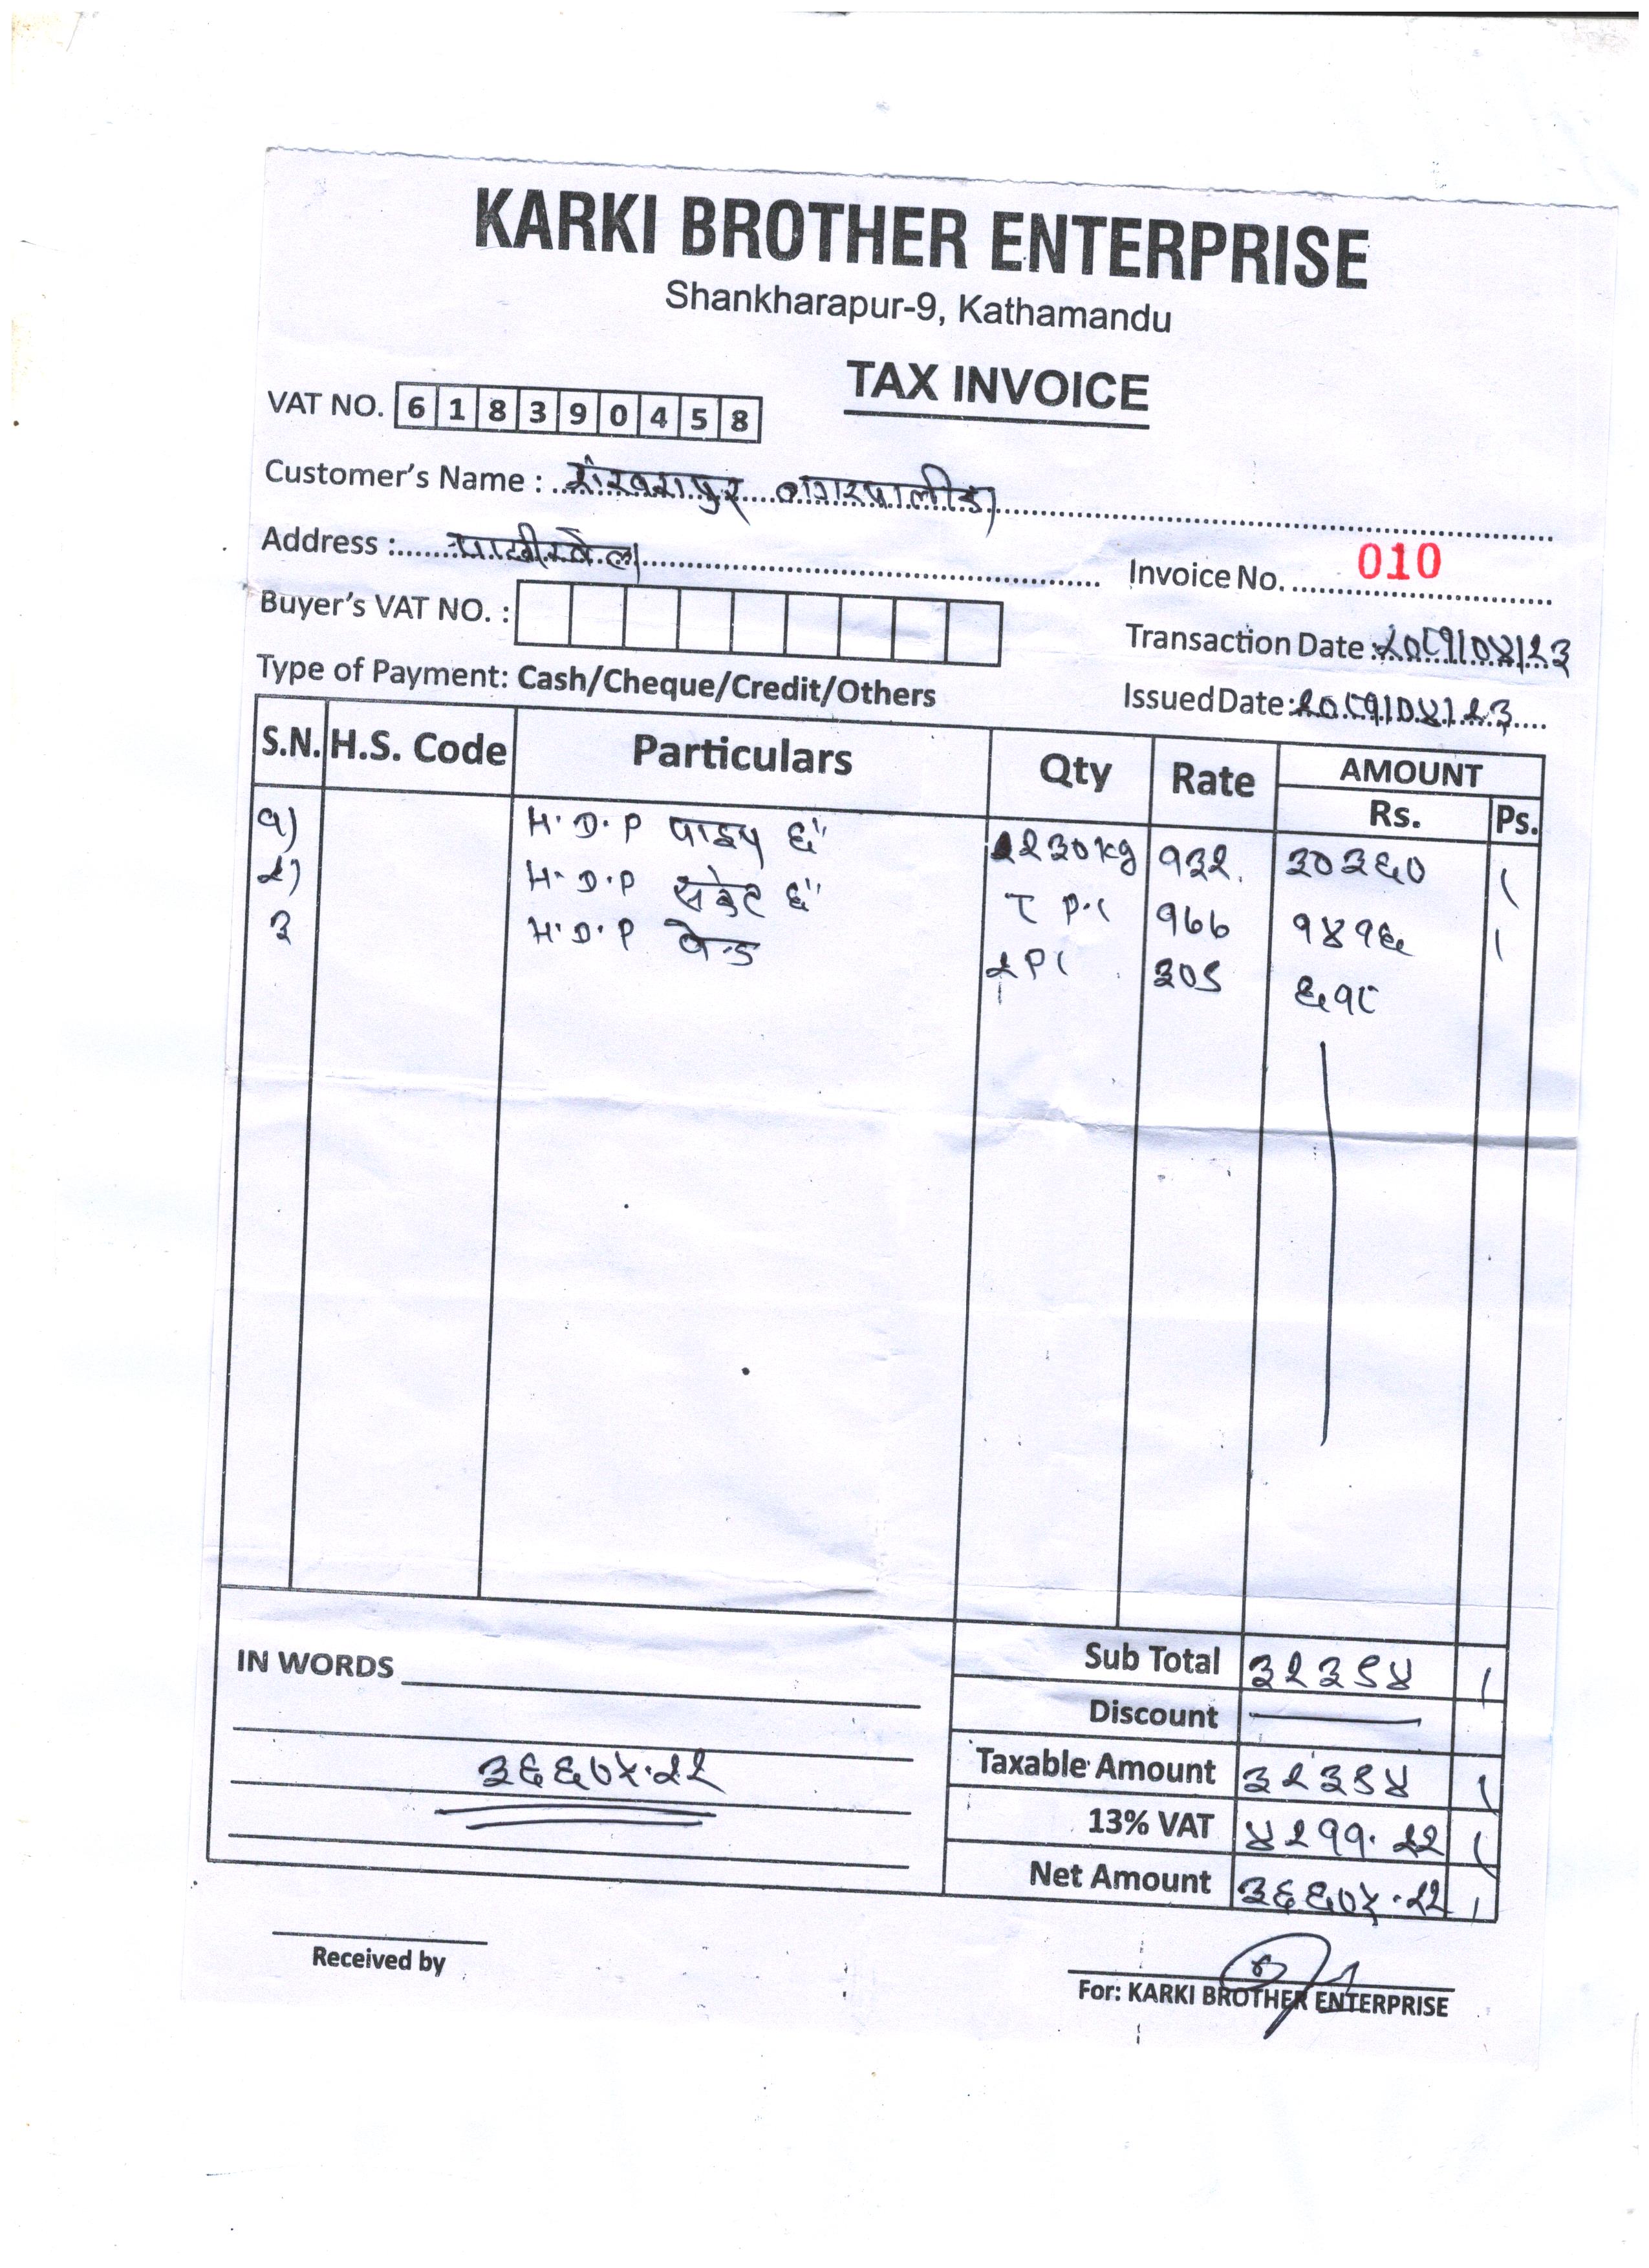 KARKI BROTHER ENTERPRISE
Shankharapur-9, Kathamandu
TAX INVOICE
VAT NO. 618390458
Customer's Name : शंखरापुर नगरपालीका
Address :
Invoice No. 010
Buyer's VAT NO. :
Transaction Date : २०८१|०४|२३
Type of Payment: Cash/Cheque/Credit/Others
Issued Date : २०८१|०४|२३
S.N. H.S. Code Particulars Qty Rate AMOUNT
Rs. Ps.
१) H.D.P पाइप ६" २३०kg १३२ ३०३६० /
२) H.D.P सकेट ६" ८ P.C १७७ १४१६ /
३ H.D.P वेन्ड २ PC ३०९ ६१८
Sub Total ३२३९४ /
IN WORDS
Discount —
Taxable Amount ३२३९४ /
३६६०५.२२
13% VAT ४२११.२२ /
Net Amount ३६६०५.२२ /
Received by
For: KARKI BROTHER ENTERPRISE